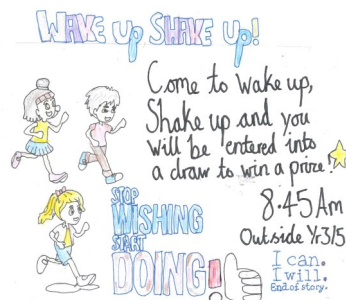 WAKE up SHAKE up!
Come to wake up,
Shake up and you
will be entered into
a draw to win a prize!
8:45 Am
Outside Yr3/5
STOP
WISHING
START
DOING!
I can.
I will.
End of story.